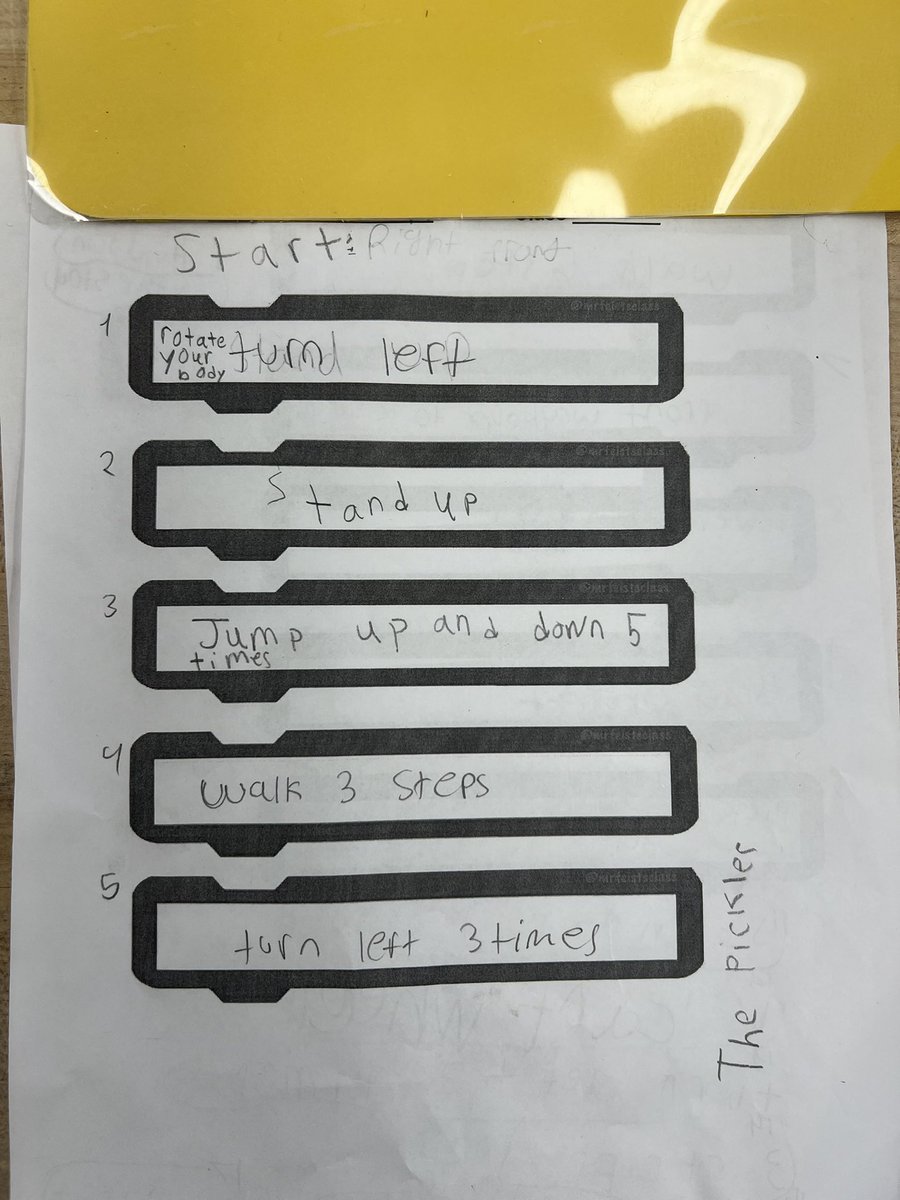 Start: Right front
@mrfeistsclass
1
rotate your body turnd left
@mrfeistsclass
2
Stand up
@mrfeistsclass
3
Jump up and down 5
times
@mrfeistsclass
4
walk 3 steps
@mrfeistsclass
5
turn left 3 times
The pickler